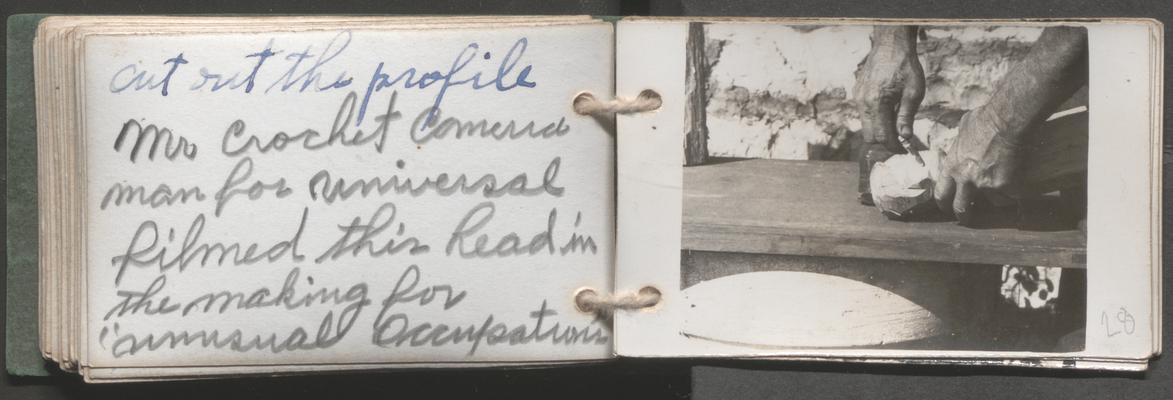 cut out the profile
Mr Crochet Camera
man for universal
filmed this head in
the making for
"unusual Occupations
28